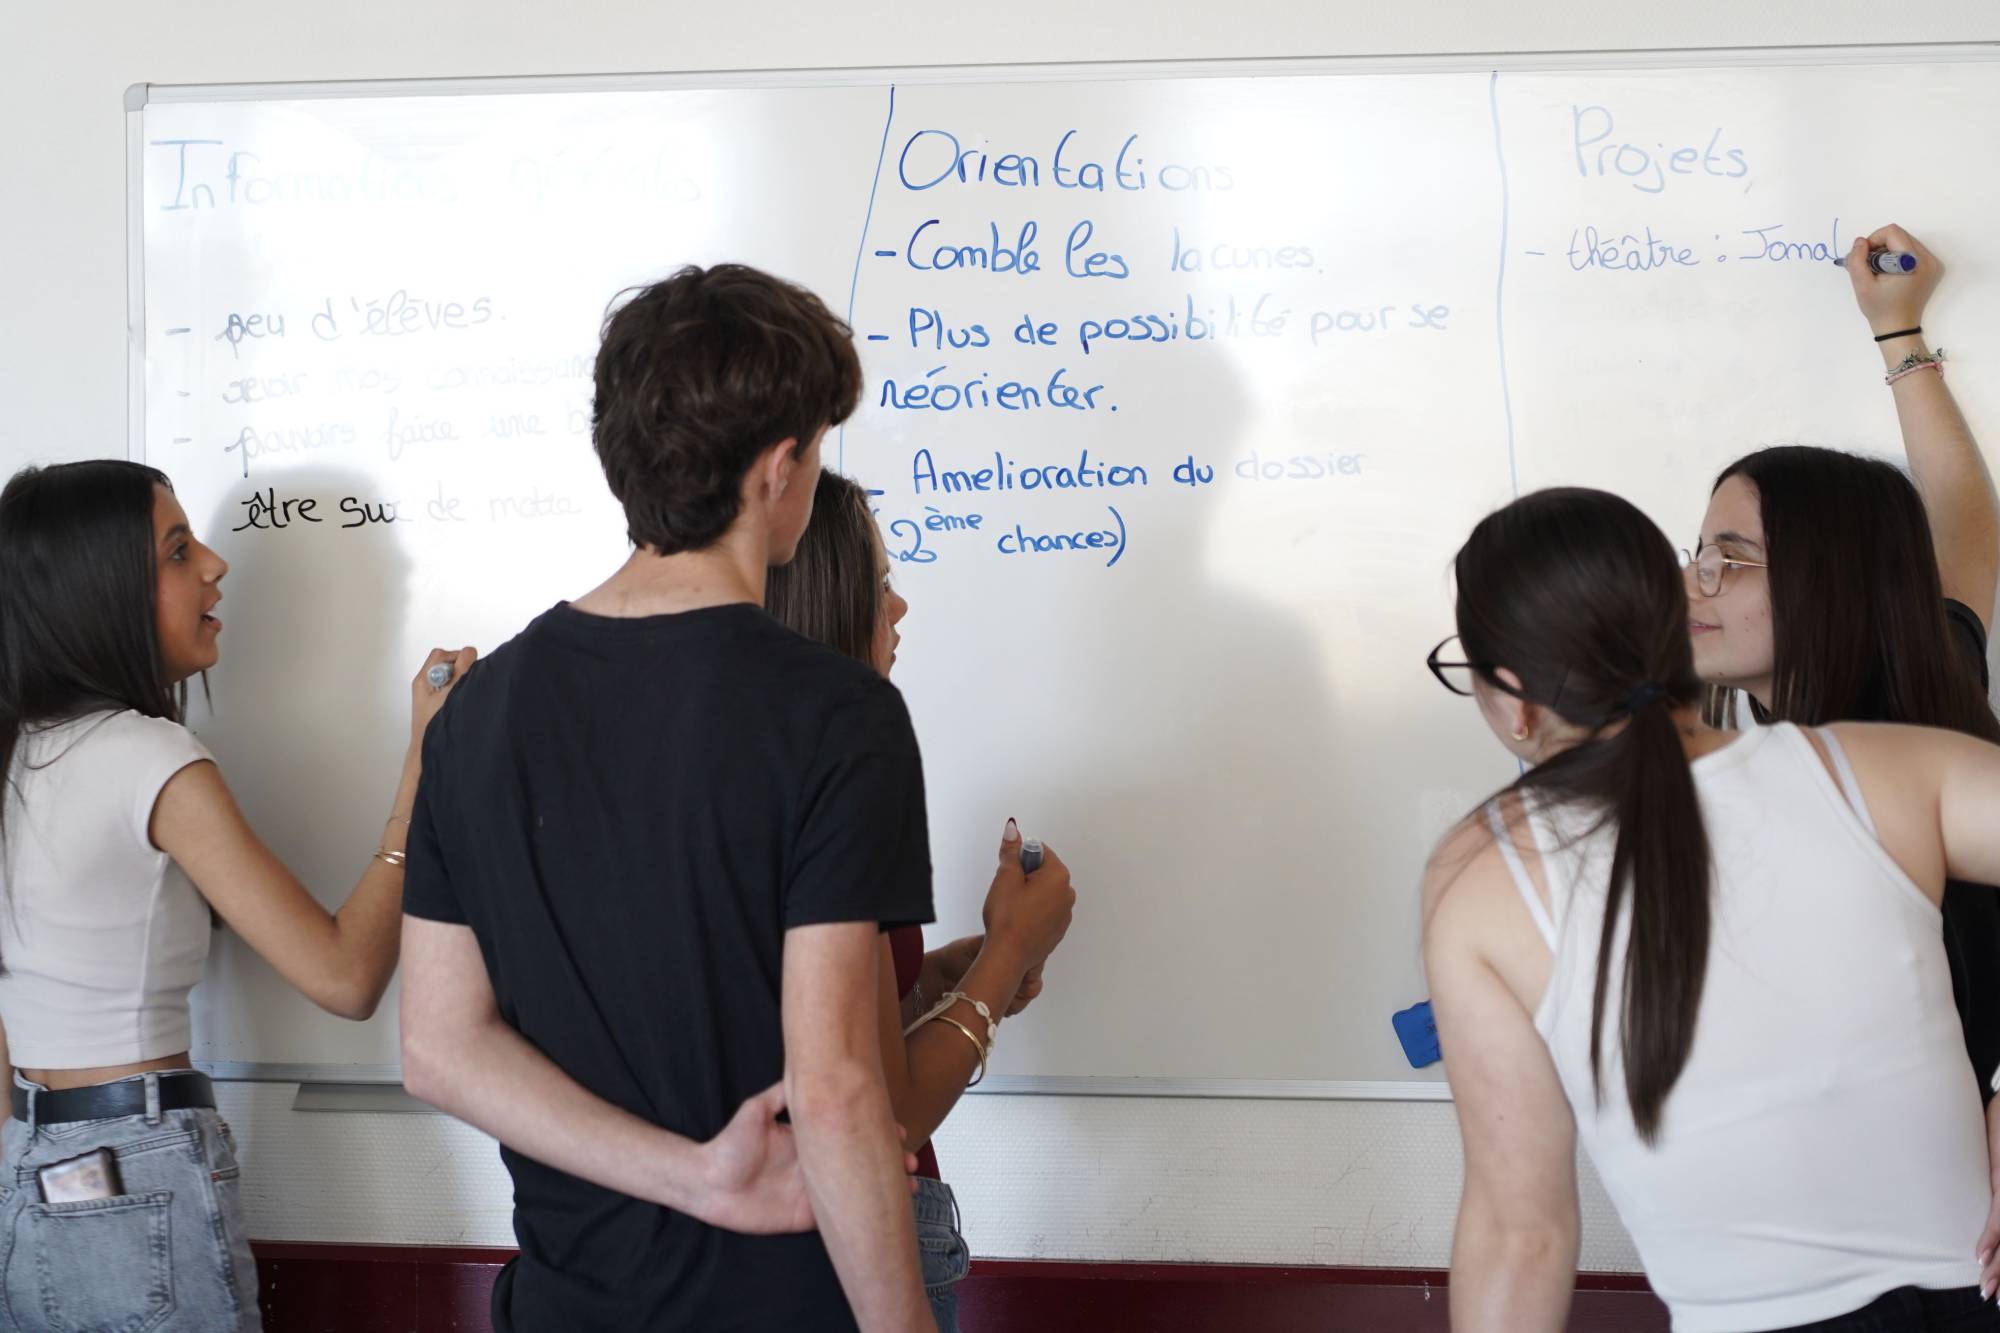 Informations générales
- peu d'élèves.
- revoir nos connaissanc
- pouvoirs faire une b
être sur de
Orientations
- Comble les lacunes.
- Plus de possibilité pour se
réorienter.
- Amelioration du dossier
(2ème chances)
Projets
- théâtre : Jomal